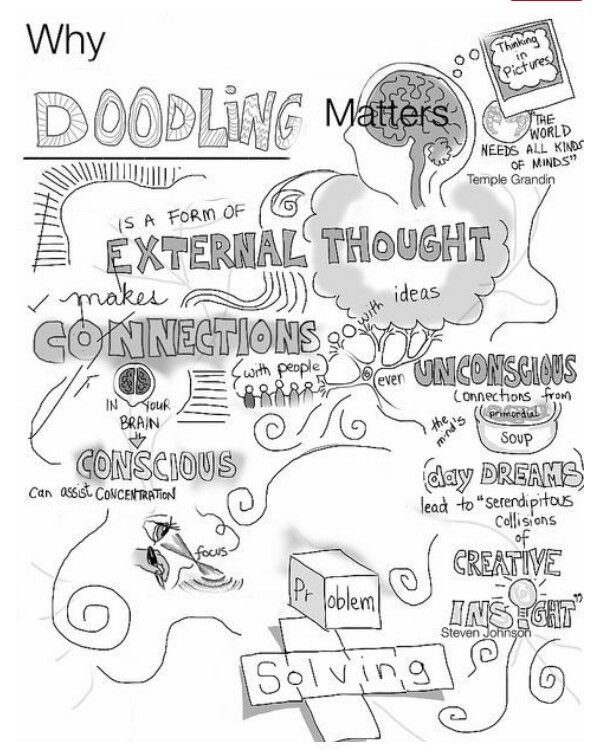 Why
DOODLING
Matters
Thinking
in
Pictures
"THE
WORLD
NEEDS ALL KINDS
OF MINDS"
Temple Grandin
IS A FORM OF
EXTERNAL THOUGHT
makes
ideas
with
CONNECTIONS
with people
even
UNCONSCIOUS
Connections from
the
mind's
primordial
SOUP
IN YOUR
BRAIN
CONSCIOUS
Can assist CONCENTRATION
focus
day DREAMS
lead to "serendipitous
Collisions
of
CREATIVE
INSIGHT"
Steven Johnson
Problem
Solving